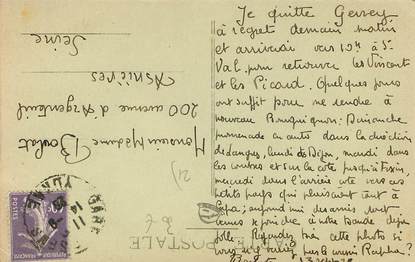 Je quitte Gevrey
à regret demain matin
et arriverai vers 10h à St
Val. pour retrouver les Vincent
et les Picard. Quelques jours
ont suffit pour me rendre à
nouveau Bourguignon: Dimanche
promenade en auto dans la direction
de Langres, lundi Dijon, mardi dans
les et sur la côte jusqu'à Fixin,
mercredi dans l'arrière côte vers ces
petits pays qui plaisaient tant à
Papa; aujourd'hui des amis sont
venus joindre à notre bande déjà
folle. Regardez cette photo si
vous
Monsieur Madame Boulat
200 avenue d'Argenteuil
Asnières
Seine
CARTE POSTALE
GARE
YONNE
POSTES